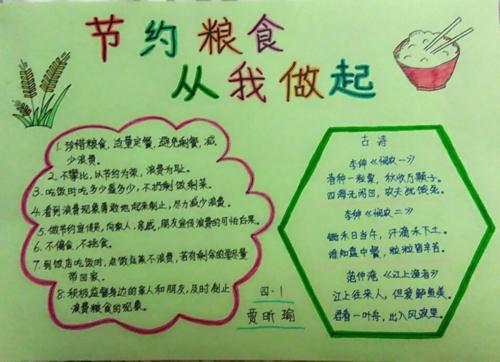 节约粮食
从我做起
1. 珍惜粮食，适量定餐，避免剩餐，减
少浪费。
2. 不攀比，以节约为荣，浪费为耻。
3. 吃饭时吃多少盛多少，不扔剩饭剩菜。
4. 看到浪费现象勇敢地起来制止，尽力减少浪费。
5. 做节约宣传员，向家人，亲戚，朋友宣传浪费的可怕后果。
6. 不偏食，不挑食。
7. 到饭店吃饭时，点饭点菜不浪费，若有剩余的要尽量
带回家。
8. 积极监督身边的亲人和朋友，及时制止
浪费粮食的现象。
四·1
贾昕瑜
古诗
李绅《悯农一》
春种一粒粟，秋收万颗子。
四海无闲田，农夫犹饿死。
李绅《悯农二》
锄禾日当午，汗滴禾下土。
谁知盘中餐，粒粒皆辛苦。
范仲淹《江上渔者》
江上往来人，但爱鲈鱼美。
君看一叶舟，出入风波里。